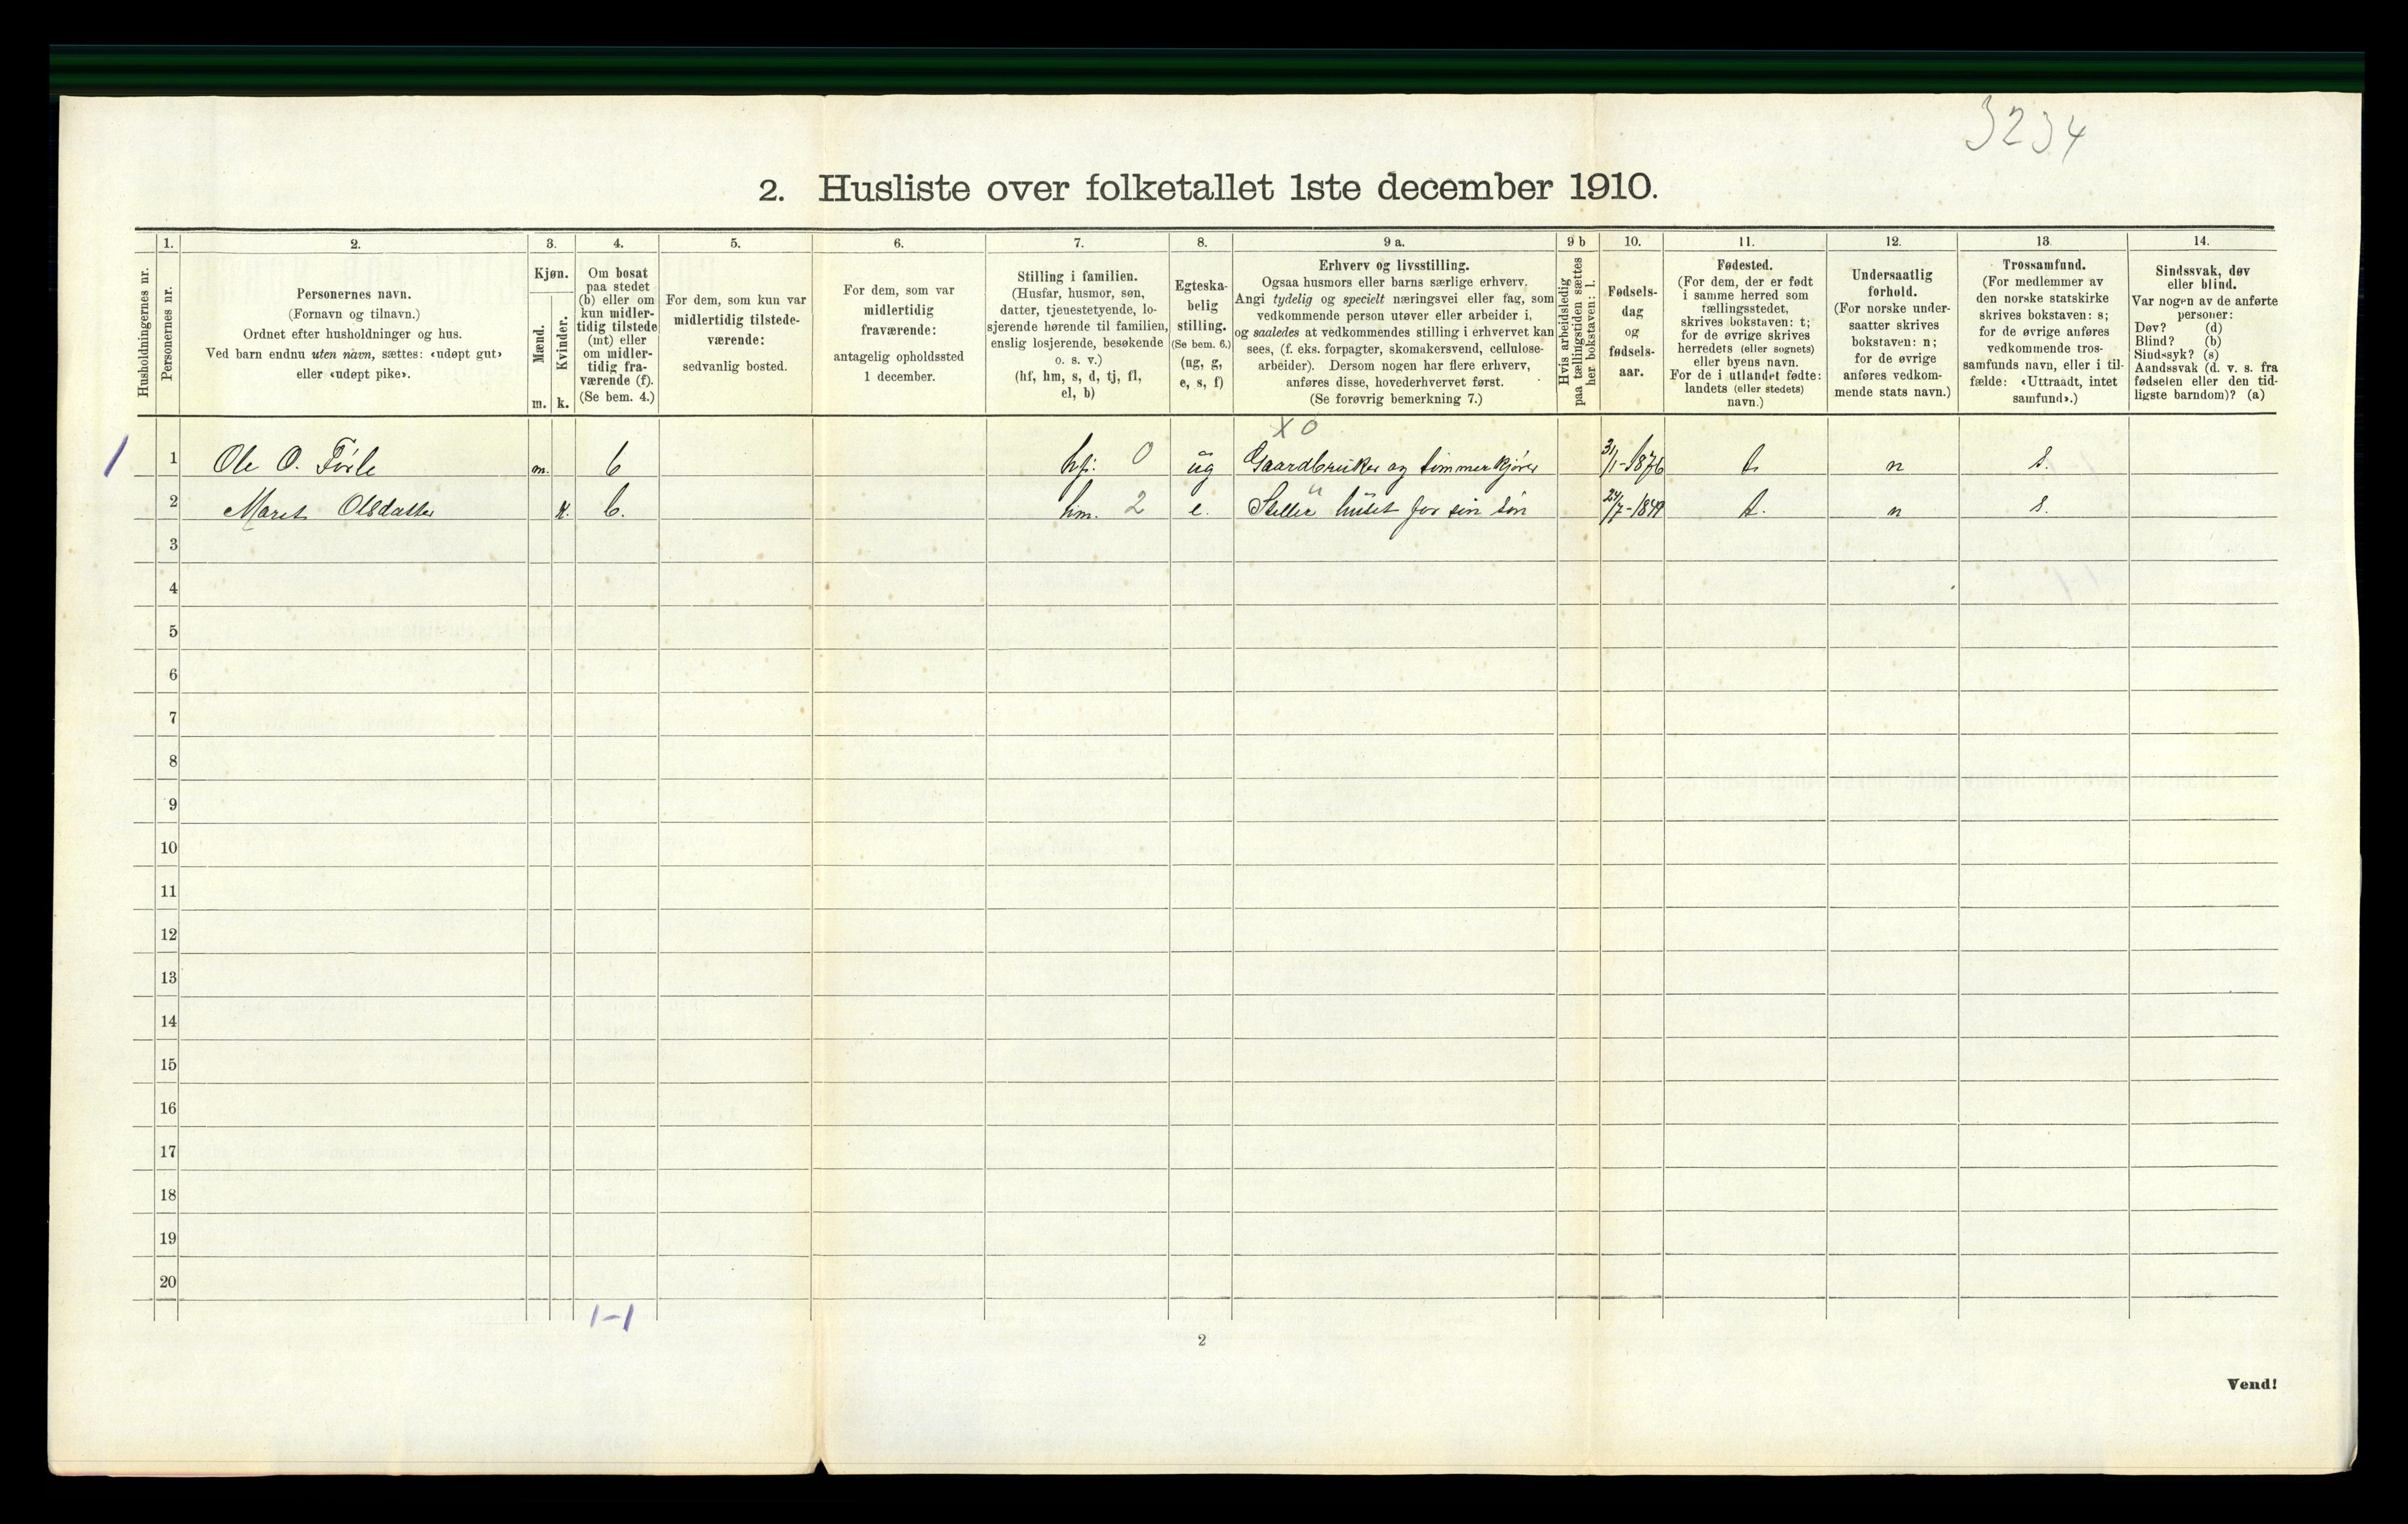 3234
2. Husliste over folketallet 1ste december 1910.
Husholdningernes nr.
1.
Personernes nr.
2.
Personernes navn.
(Fornavn og tilnavn.)
Ordnet efter husholdninger og hus.
Ved barn endnu uten navn, sættes: «udøpt gut»
eller «udøpt pike».
3.
Kjøn.
Mænd.
Kvinder.
m. k.
4.
Om bosat
paa stedet
(b) eller om
kun midler-
tidig tilstede
(mt) eller
om midler-
tidig fra-
værende (f).
(Se bem. 4.)
5.
For dem, som kun var
midlertidig tilstede-
værende:
sedvanlig bosted.
6.
For dem, som var
midlertidig
fraværende:
antagelig opholdssted
1 december.
7.
Stilling i familien.
(Husfar, husmor, søn,
datter, tjenestetyende, lo-
sjerende hørende til familien,
enslig losjerende, besøkende
o. s. v.)
(hf, hm, s, d, tj, fl,
el, b)
8.
Egteska-
belig
stilling.
(Se bem. 6.)
(ug, g,
e, s, f)
9 a.
Erhverv og livsstilling.
Ogsaa husmors eller barns særlige erhverv.
Angi tydelig og specielt næringsvei eller fag, som
vedkommende person utøver eller arbeider i,
og saaledes at vedkommendes stilling i erhvervet kan
sees, (f. eks. forpagter, skomakersvend, cellulose-
arbeider). Dersom nogen har flere erhverv,
anføres disse, hovederhvervet først.
(Se forøvrig bemerkning 7.)
9 b
Hvis arbeidsledig
paa tællingstiden sættes
her bokstaven: l.
10.
Fødsels-
dag
og
fødsels-
aar.
11.
Fødested.
(For dem, der er født
i samme herred som
tællingsstedet,
skrives bokstaven: t;
for de øvrige skrives
herredets (eller sognets)
eller byens navn.
For de i utlandet fødte:
landets (eller stedets)
navn.)
12.
Undersaatlig
forhold.
(For norske under-
saatter skrives
bokstaven: n;
for de øvrige
anføres vedkom-
mende stats navn.)
13
Trossamfund.
(For medlemmer av
den norske statskirke
skrives bokstaven: s;
for de øvrige anføres
vedkommende tros-
samfunds navn, eller i til-
fælde: «Uttraadt, intet
samfund».)
14.
Sindssvak, døv
eller blind.
Var nogen av de anførte
personer:
Døv? (d)
Blind? (b)
Sindssyk? (s)
Aandssvak (d. v. s. fra
fødselen eller den tid-
ligste barndom)? (a)
X 0
1 1 Ole O. Førle m. b hf. 0 ug Gaardbruker og tømmerkjører 31/1-1876 t. n s.
2 Marit Olsdatter k. b. hm. 2 e. Steller huset for sin søn t. n s.
3
4
5
6
7
8
9
10
11
12
13
14
15
16
17
18
19
20
1-1
2
Vend!